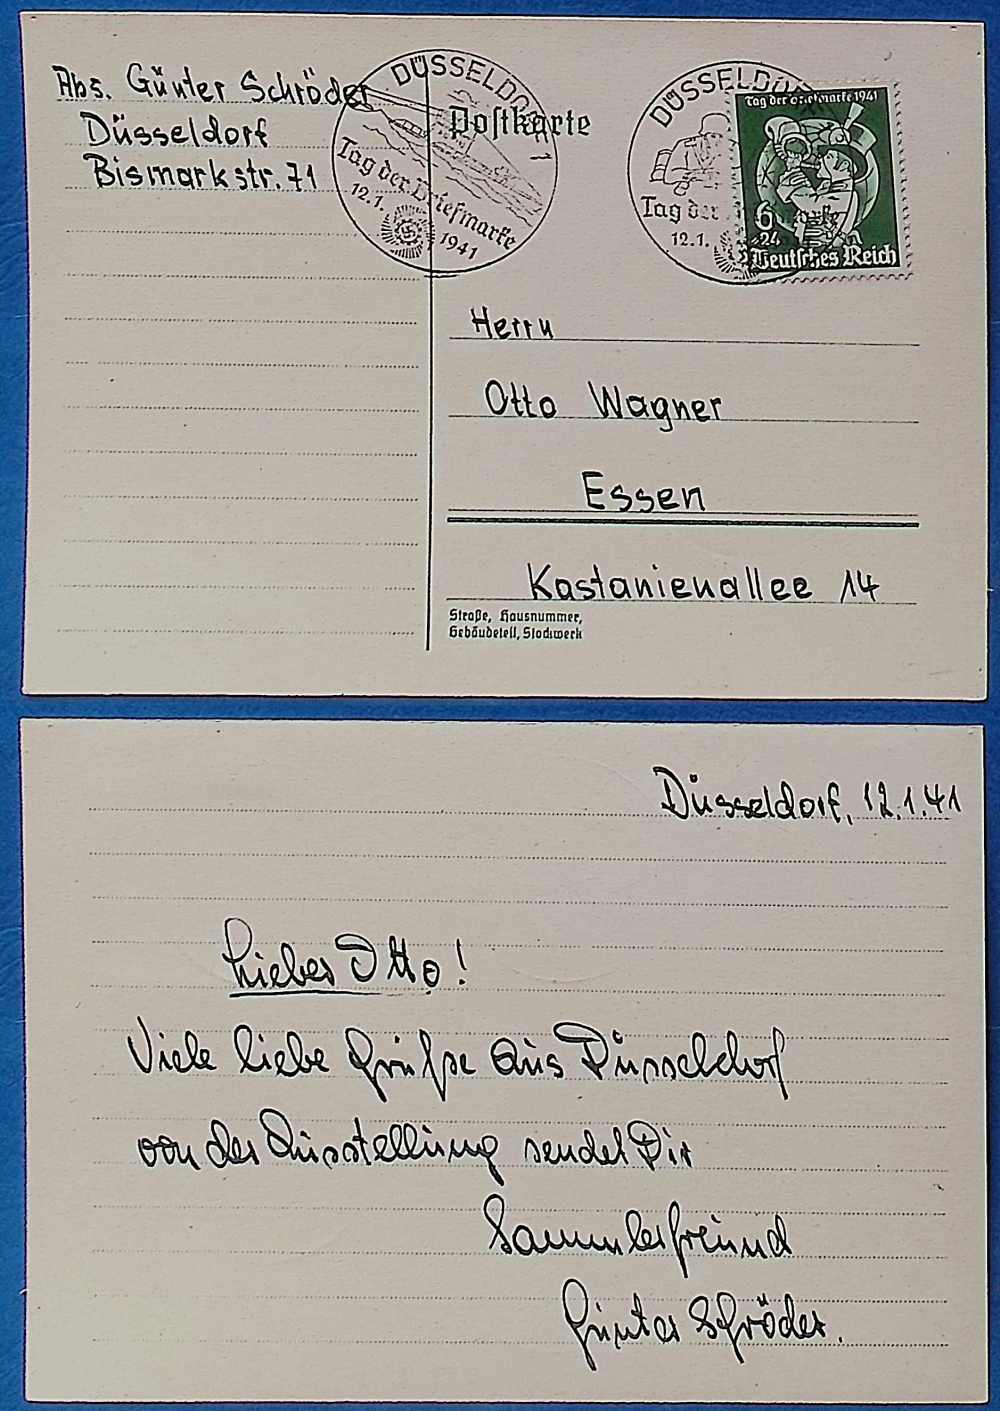 Abs. Günter Schröder
Düsseldorf
Bismarkstr. 71
DÜSSELDORF 1
Tag der Briefmarke
12.1. 1941
Postkarte
DÜSSELDORF
Tag der Briefmarke
12.1.
Tag der Briefmarke 1941
6
+24
Deutsches Reich
Herrn
Otto Wagner
Essen
Kastanienallee 14
Straße, Hausnummer,
Gebäudeteil, Stockwerk
Düsseldorf, 12.1.41
Lieber Otto!
Viele liebe Grüße aus Düsseldorf
von der Ausstellung sendet Dir
Sammlerfreund
Günter Schröder.